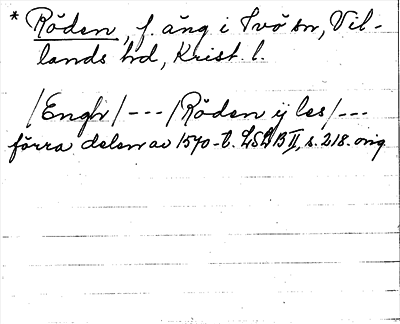 * Röden, f. äng i Ivö sn, Vil-
lands hd, Krist. l.
/Engh/ --- /Röden ij les/ ---
förra delen av 1570-t. LSLB II, s. 218. orig.